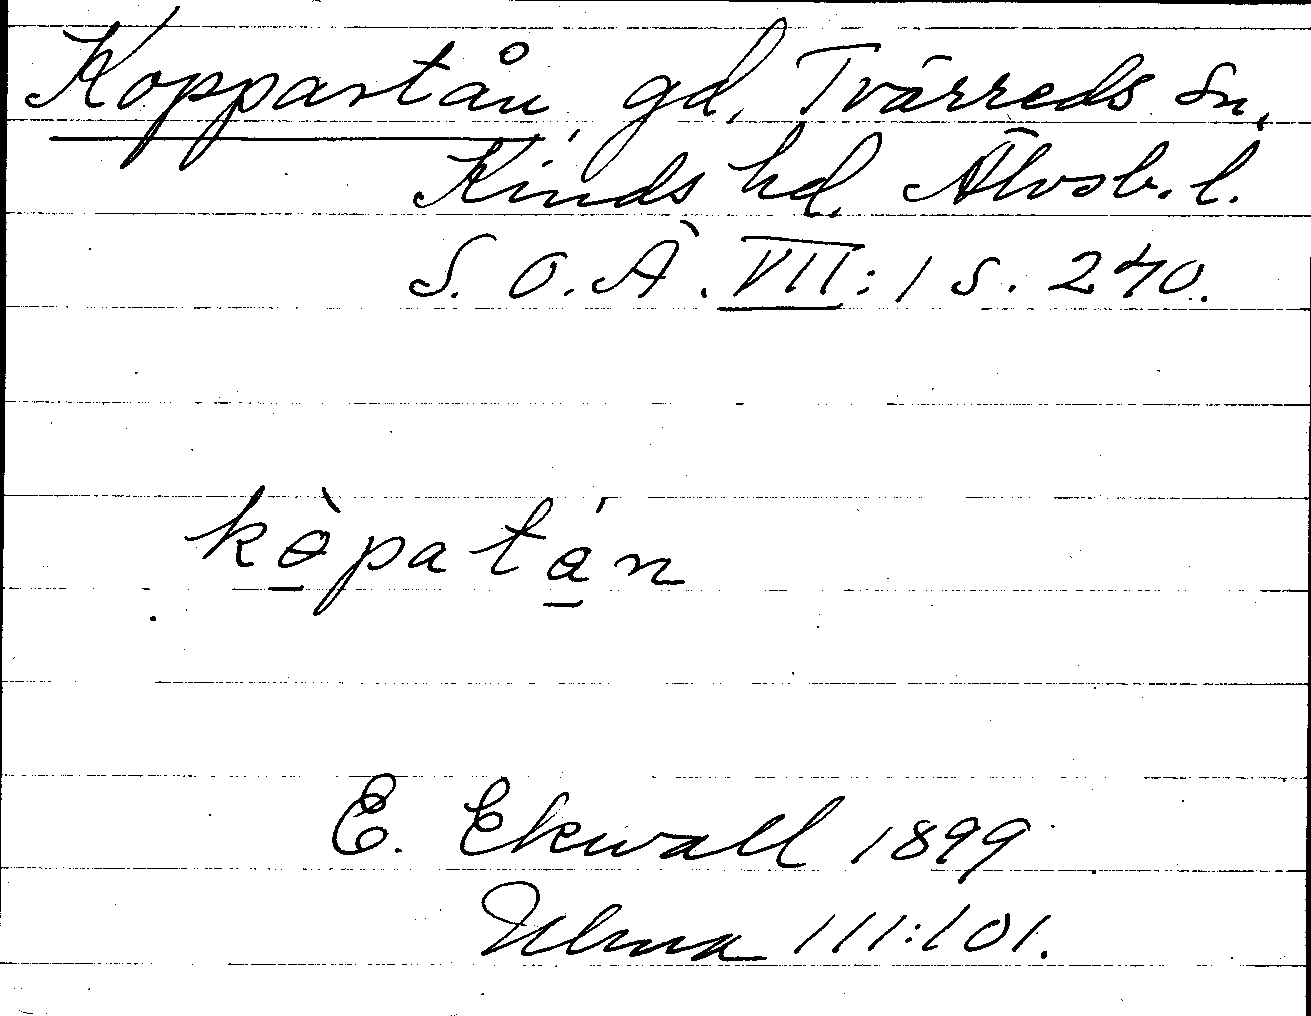 Koppartån, gd, Tvärreds sn,
Kinds hd, Älvsb. l.
S. O. Ä. VII: 1 s. 240.
kɵ̱̀patá̱n
E. Ekwall 1899
Ulma 111:101.